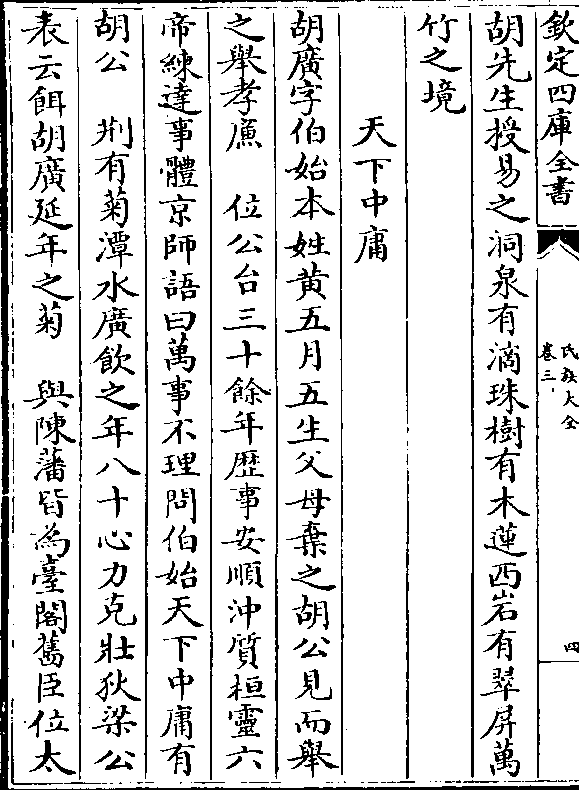 欽定四庫全書
氏族大全
卷三
四
胡先生授易之洞泉有滴珠樹有木蓮西岩有翠屏萬
竹之境
天下中庸
胡廣字伯始本姓黃五月五生父母棄之胡公見而舉
之舉孝廉　位公台三十餘年歴事安順沖質桓靈六
帝練達事體京師語曰萬事不理問伯始天下中庸有
胡公　荆有菊潭水廣飲之年八十心力克壯狄梁公
表云餌胡廣延年之菊　與陳蕃皆為臺閣舊臣位太